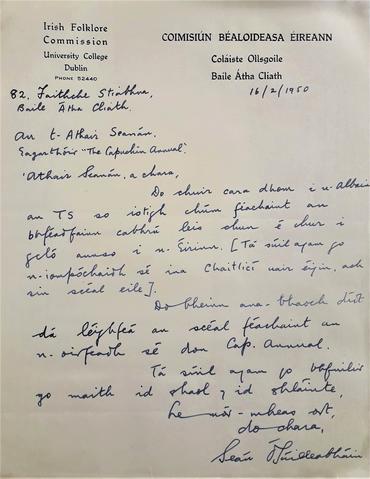 Irish Folklore
Commission
University College
Dublin
PHONE 52440
COIMISIÚN BÉALOIDEASA ÉIREANN
Coláiste Ollsgoile
Baile Átha Cliath
16/2/1950
82, Faithche Stiabhna,
Baile Átha Cliath.
An t-Athair Seanán,
Eagarthóir "The Capuchin Annual".
'Athair Seanán, a chara,
Do chuir cara dhom i n-Albain
an TS so istigh chúm féachaint an
bhféadfainn cabhrú leis chun é chur i
gcló annso i n-Éirinn. [Tá súil agam go
n-iompóchaidh sé ina Chaitlicí uair éigin, ach
sin scéal eile].
Do bheinn ana-bhaoch díot
dá léighfeá an scéal féachaint an
n-oirfeadh sé don Cap. Annual.
Tá súil agam go bhfuilir
go maith id shaol ⁊ id shláinte,
Le mór-mheas ort,
do chara,
Seán Ó Súilleabháin